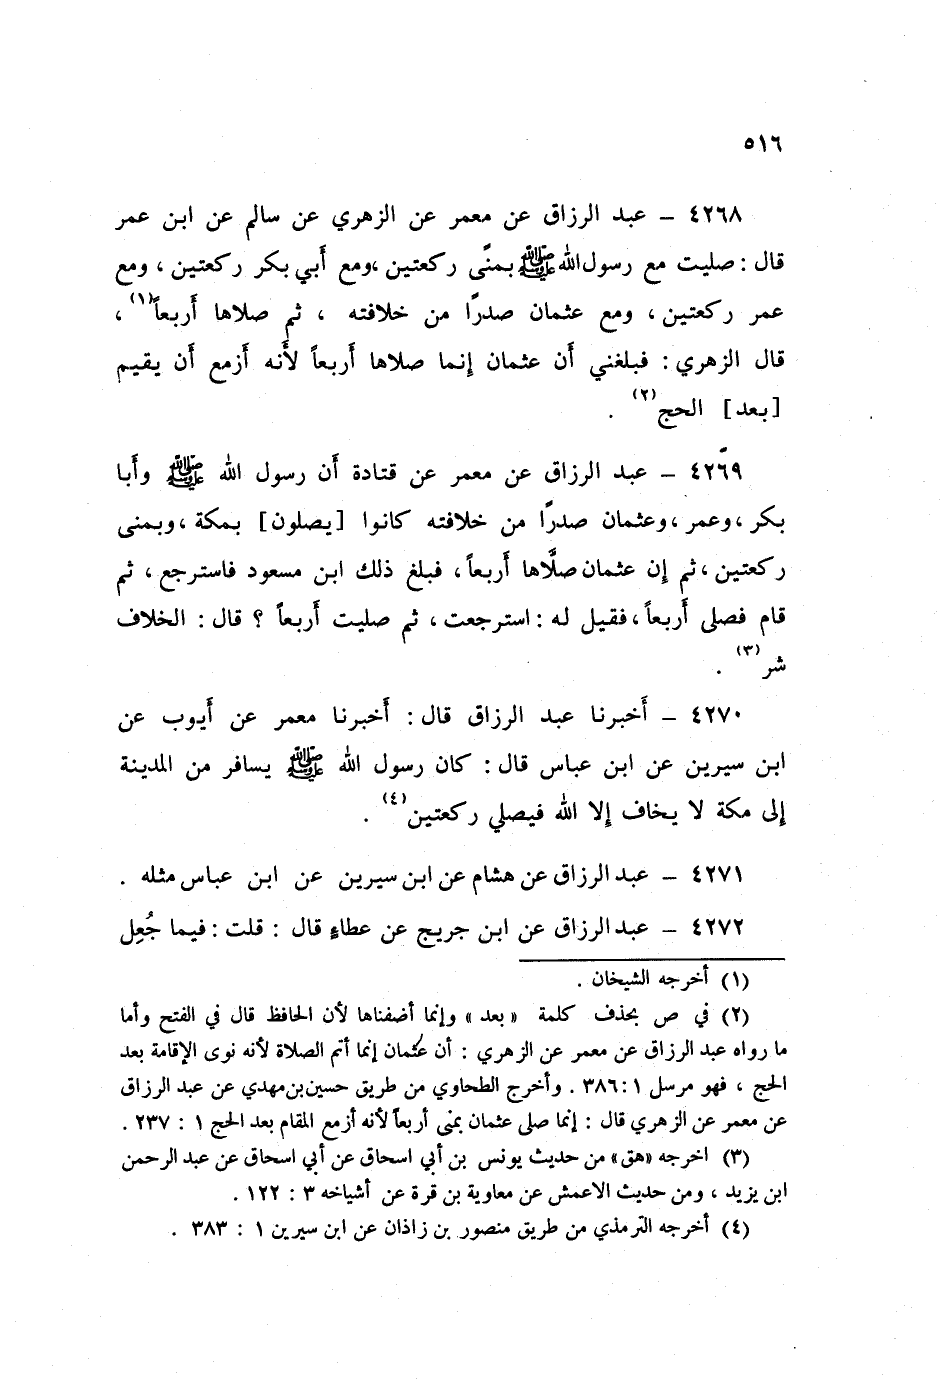 ٥١٦
٤٢٦٨ ـ عبد الرزاق عن معمر عن الزهري عن سالم عن ابن عمر
قال : صليت مع رسول الله ﷺ بمنًى ركعتين ، ومع أبي بكر ركعتين ، ومع
عمر ركعتين ، ومع عثمان صدرًا من خلافته ، ثم صلاها أربعاً(١) ،
قال الزهري : فبلغني أن عثمان إنما صلاها أربعاً لأنه أزمع أن يقيم
[بعد] الحج(٢) .
٤٢٦٩ ـ عبد الرزاق عن معمر عن قتادة أن رسول الله ﷺ وأبا
بكر ، وعمر ، وعثمان صدرًا من خلافته كانوا [يصلون] بمكة ، وبمنى
ركعتين ، ثم إن عثمان صلَّاها أربعاً ، فبلغ ذلك ابن مسعود فاسترجع ، ثم
قام فصلى أربعاً ، فقيل له : استرجعت ، ثم صليت أربعاً ؟ قال : الخلاف
شر(٣) .
٤٢٧٠ ـ أخبرنا عبد الرزاق قال : أخبرنا معمر عن أيوب عن
ابن سيرين عن ابن عباس قال : كان رسول الله ﷺ يسافر من المدينة
إلى مكة لا يخاف إلا الله فيصلي ركعتين(٤) .
٤٢٧١ ـ عبد الرزاق عن هشام عن ابن سيرين عن ابن عباس مثله .
٤٢٧٢ ـ عبد الرزاق عن ابن جريج عن عطاءٍ قال : قلت : فيما جُعِل
(١) أخرجه الشيخان .
(٢) في ص بحذف كلمة « بعد » وإنما أضفناها لأن الحافظ قال في الفتح وأما
ما رواه عبد الرزاق عن معمر عن الزهري : أن عثمان إنما أتم الصلاة لأنه نوى الإقامة بعد
الحج ، فهو مرسل ١ : ٣٨٦ . وأخرج الطحاوي من طريق حسين بن مهدي عن عبد الرزاق
عن معمر عن الزهري قال : إنما صلى عثمان بمنى أربعاً لأنه أزمع المقام بعد الحج ١ : ٢٣٧ .
(٣) اخرجه «هق» من حديث يونس بن أبي اسحاق عن أبي اسحاق عن عبد الرحمن
ابن يزيد ، ومن حديث الاعمش عن معاوية بن قرة عن أشياخه ٣ : ١٢٢ .
(٤) أخرجه الترمذي من طريق منصور بن زاذان عن ابن سيرين ١ : ٣٨٣ .